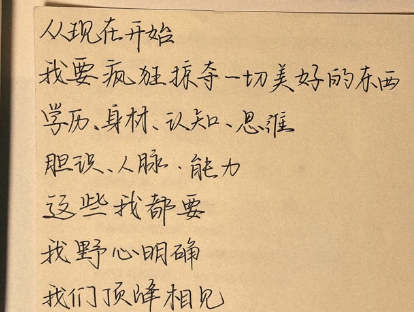 从现在开始
我要疯狂掠夺一切美好的东西
学历、身材、认知、思维
胆识、人脉、能力
这些我都要
我野心明确
我们顶峰相见